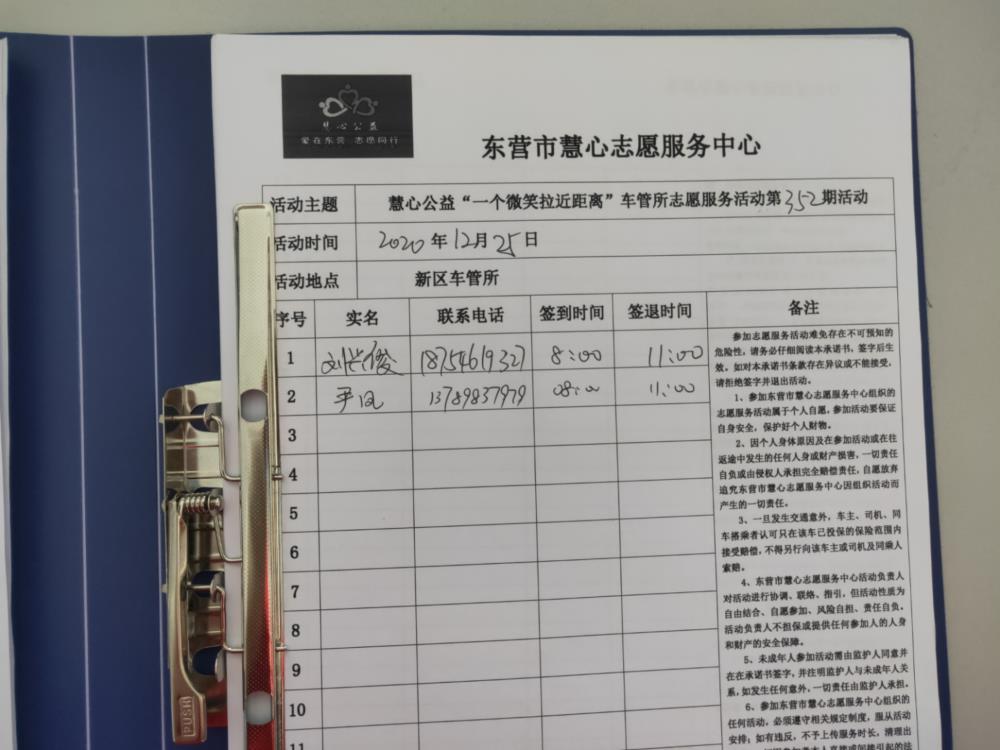 慧心公益
爱在东营 志愿同行
东营市慧心志愿服务中心
活动主题 慧心公益“一个微笑拉近距离”车管所志愿服务活动第352期活动
活动时间 2020年12月25日
活动地点 新区车管所
序号 实名 联系电话 签到时间 签退时间 备注
1 刘兴俊 18754619327 8:00 11:00
2 尹凤 13789837979 08:00 11:00
3
4
5
6
7
8
9
10
11
参加志愿服务活动难免存在不可预知的
危险性,请务必仔细阅读本承诺书,签字后生
效。如对本承诺书条款存在异议或不能接受,
请拒绝签字并退出活动。
1、参加东营市慧心志愿服务中心组织的
志愿服务活动属于个人自愿,参加活动要保证
自身安全,保护好个人财物。
2、因个人身体原因及在参加活动或在往
返途中发生的任何人身或财产损害,一切责任
自负或由侵权人承担完全赔偿责任,自愿放弃
追究东营市慧心志愿服务中心因组织活动而
产生的一切责任。
3、一旦发生交通意外,车主、司机、同
车搭乘者认可只在该车已投保的保险范围内
接受赔偿,不得另行向该车主或司机及同乘人
索赔。
4、东营市慧心志愿服务中心活动负责人
对活动进行协调、联络、指引,但活动性质为
自由结合、自愿参加、风险自担、责任自负。
活动负责人不担保或提供任何参加人的人身
和财产的安全保障。
5、未成年人参加活动需由监护人同意并
在在承诺书签字,并注明监护人与未成年人关
系,如发生任何意外,一切责任由监护人承担。
6、参加东营市慧心志愿服务中心组织的
任何活动,必须遵守相关规定制度,服从活动
安排;如有违反,不予上传服务时长,清理出
PUSH